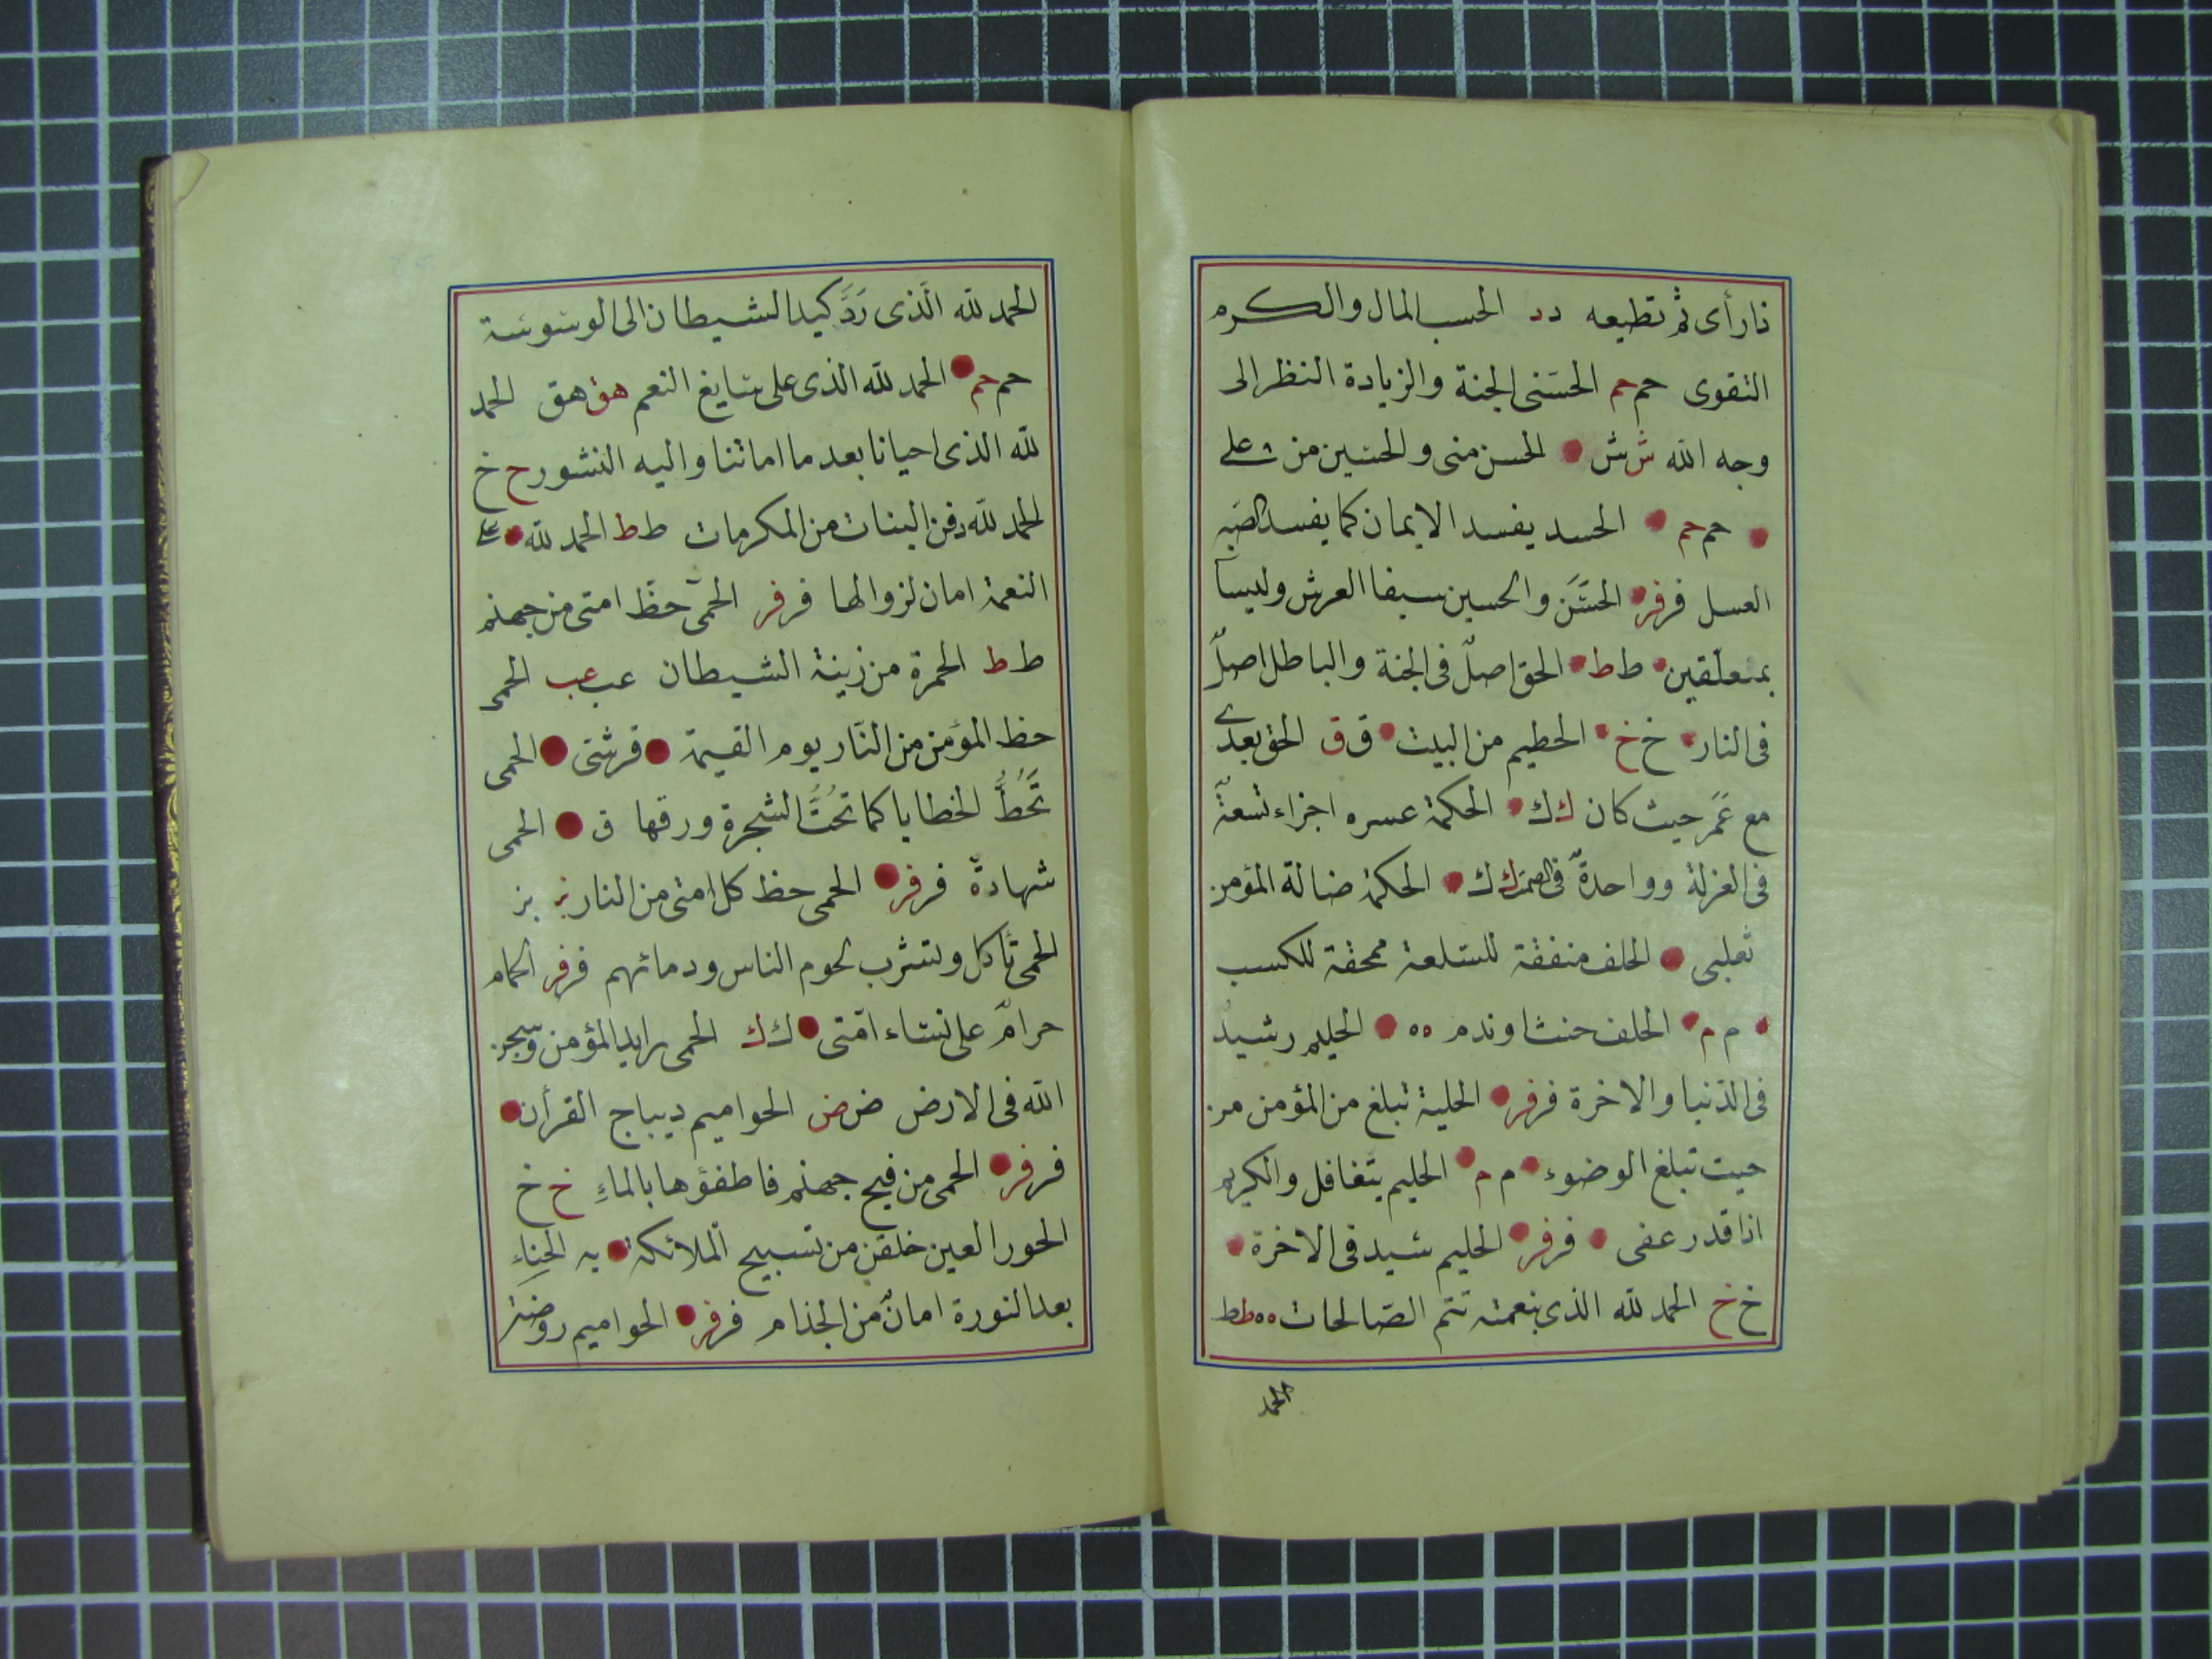 ذا رأى ثم تطيعه دد الحسب المال والكرم
التقوى حم حم الحسنى الجنة والزيادة النظر الى
وجه الله ش ش الحسن منى والحسين من على
حم حم الحسد يفسد الايمان كما يفسد الصبر
العسل فر فر الحسن والحسين سيفا العرش وليسا
بمتعلقين ط ط الحق اصل فى الجنة والباطل اصل
فى النار خ خ الحطيم من البيت ق ق الحق بعدى
مع عمر حيث كان ك ك الحكمة عسره اجزاء تسعة
فى العزلة وواحدة فى الصمت ك ك الحكمة ضالة المؤمن
ثعلبى الحلف منفقة للسلعة ممحقة للكسب
م م الحلف حنث او ندم ه ه الحليم رشيد
فى الدنيا والاخرة فر فر الحلية تبلغ من المؤمن من
حيث تبلغ الوضوء م م الحليم يتغافل والكريم
اذا قدر عفى فر فر الحليم سيد فى الاخرة
خ خ الحمد لله الذى بنعمته تتم الصالحات ه ه ط ط
الحمد
الحمد لله الذى رد كيد الشيطان الى الوسوسة
حم حم الحمد لله الذى على سايغ النعم هق هق الحمد
لله الذى احيانا بعد ما اماتنا واليه النشور ح خ
الحمد لله دفن البنات من المكرمات ط ط الحمد لله على
النعمة امان لزوالها فر فر الحمى حظ امتى من جهنم
ط ط الحمرة من زينة الشيطان عب عب الحمى
حظ المؤمن من النار يوم القيمة قرشتى الحمى
تحط الخطايا كما تحت الشجرة ورقها ق الحمى
شهادة فر فر الحمى حظ كل امتى من النار بز بز
الحمى تأكل وتشرب لحوم الناس ودمائهم فر فر الحمام
حرام على نساء امتى ك ك الحمى رايد المؤمن وسجن
الله فى الارض ض ض الحواميم ديباج القرأن
فر فر الحمى من فيح جهنم فاطفؤها بالماء خ خ
الحور العين خلقن من تسبيح الملائكة يه الحناء
بعد النورة امان من الجذام فر فر الحواميم روضة